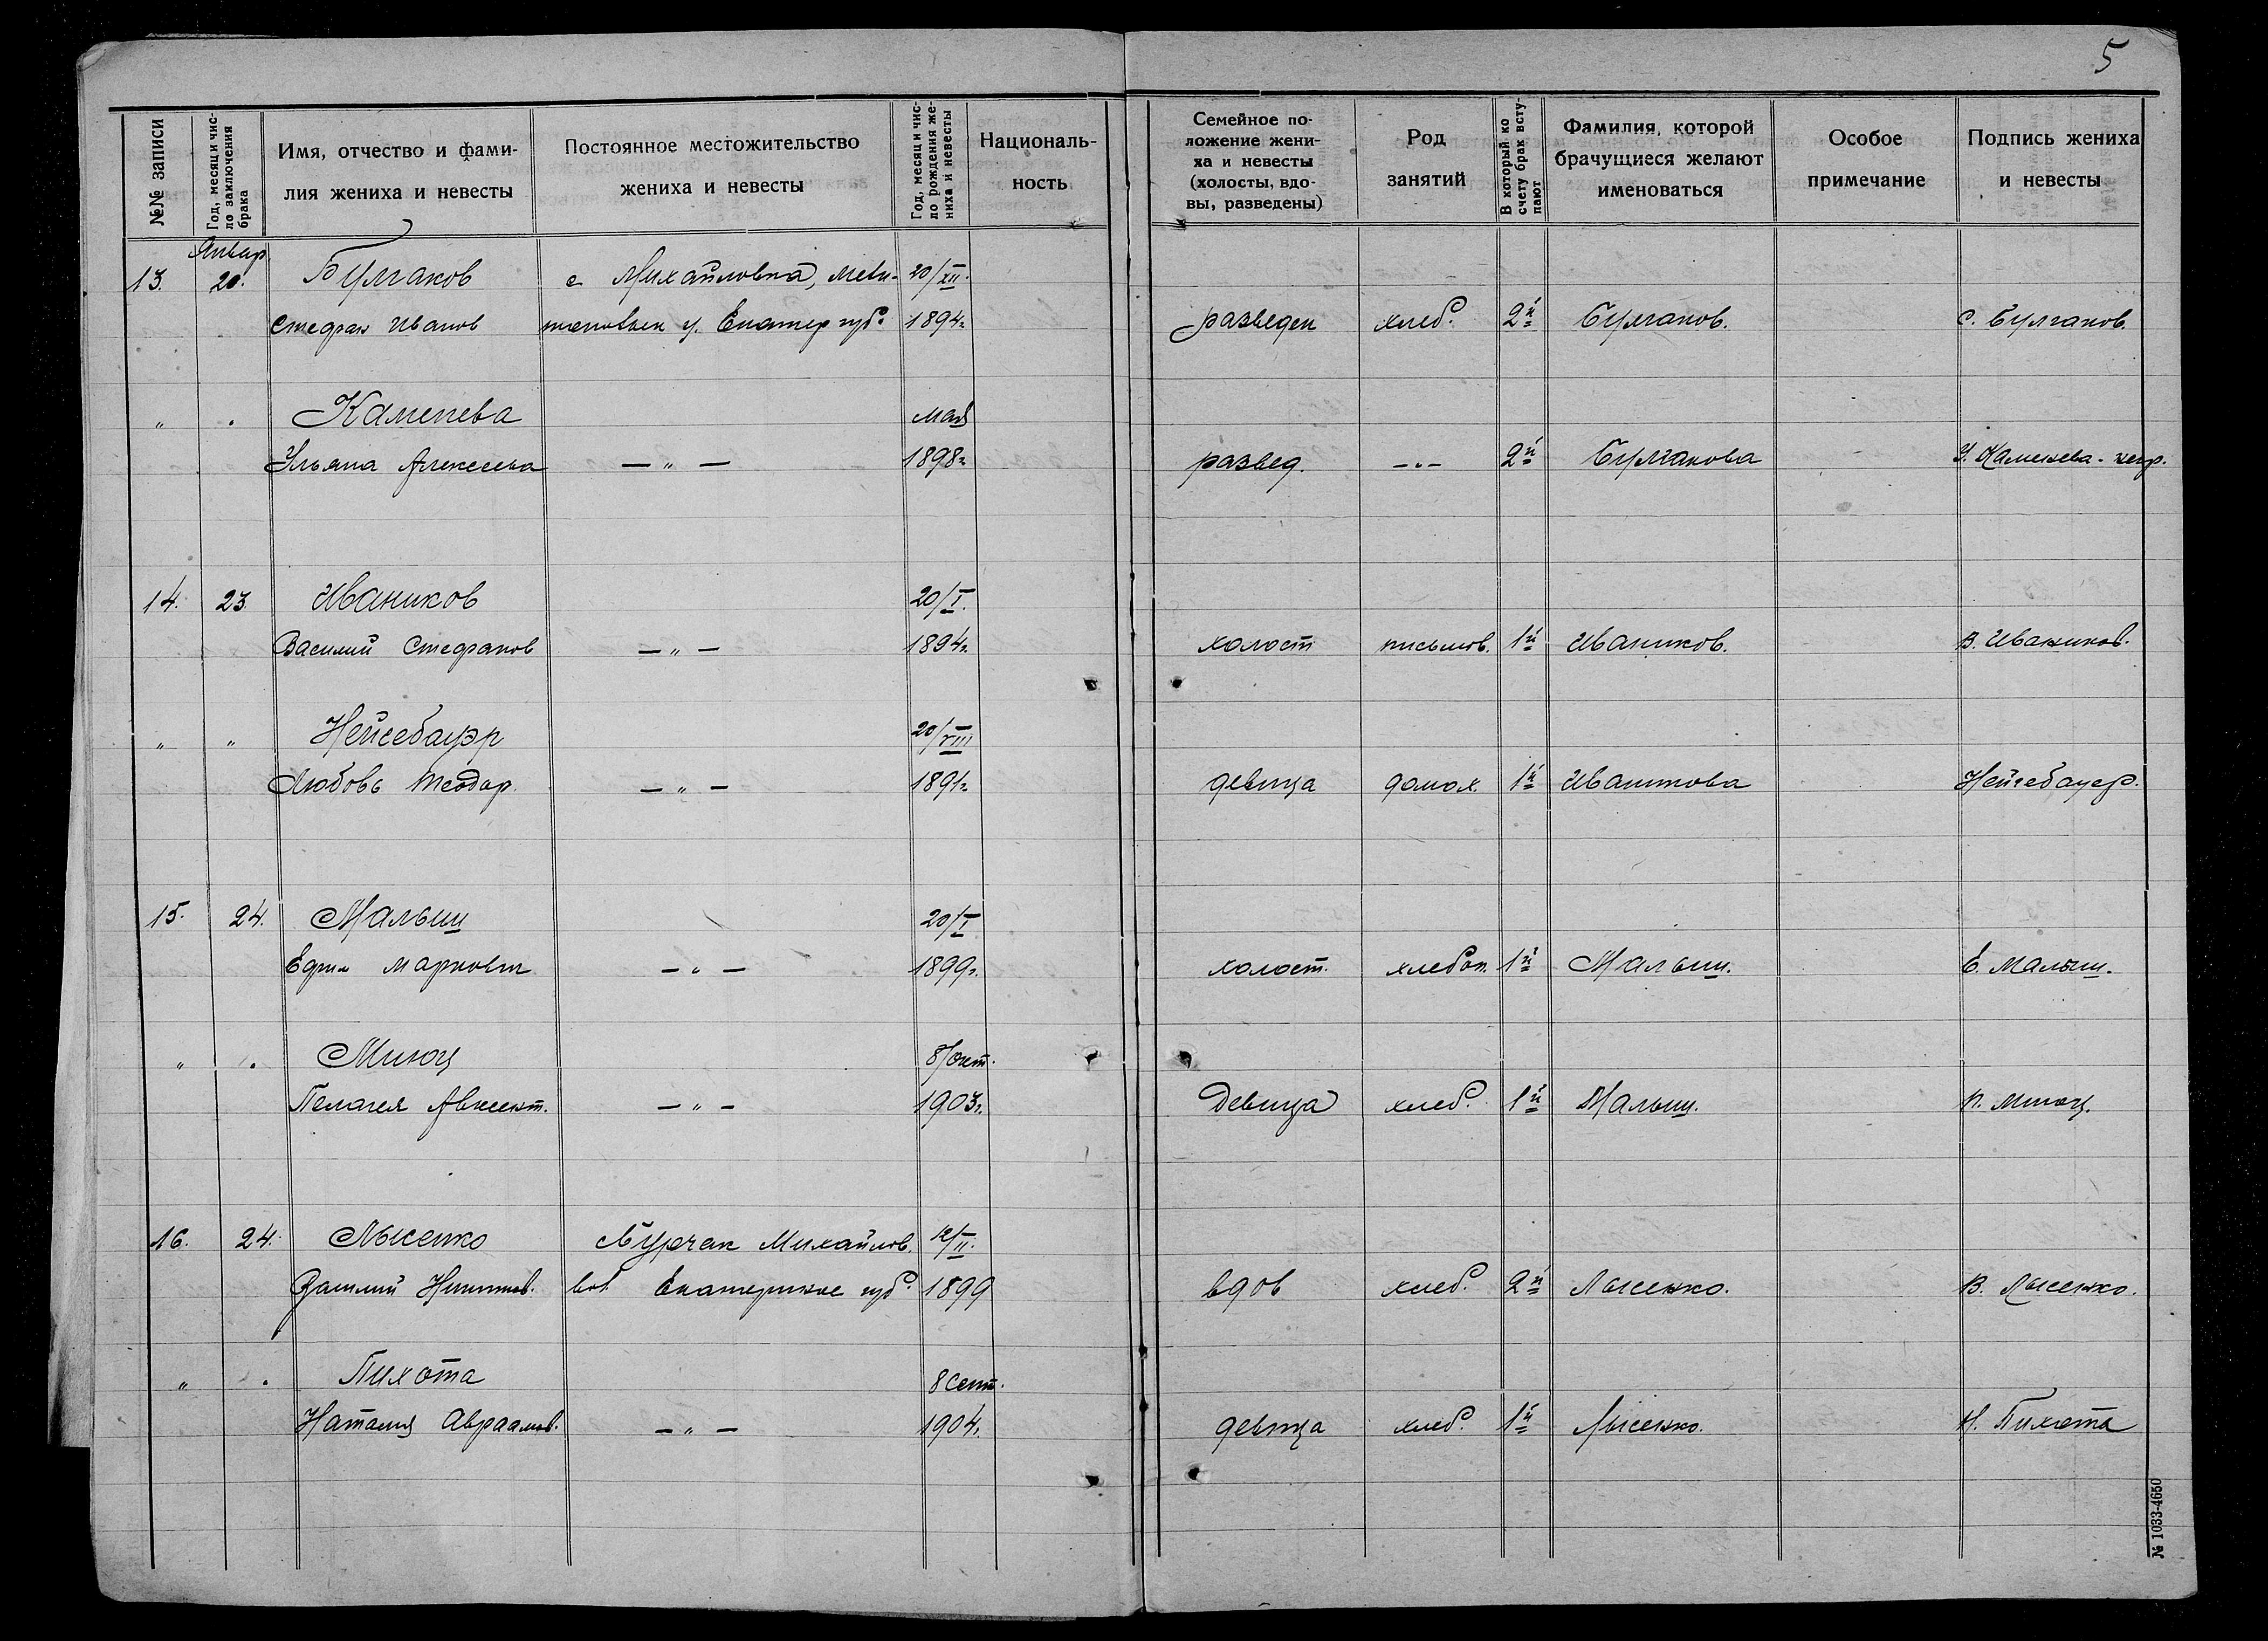 5
№№ записи
Год, месяц и чис-
ло заключения
брака
Имя, отчество и фами-
лия жениха и невесты
Постоянное местожительство
жениха и невесты
Год, месяц и чис-
ло рождения же-
ниха и невесты
Националь-
ность
Семейное по-
ложение жени-
ха и невесты
(холосты, вдо-
вы, разведены)
Род
занятий
В который ко
счету брак всту-
пают
Фамилия, которой
брачущиеся желают
именоваться
Особое
примечание
Подпись жениха
и невесты
Январ
13. 20. Булгаков с Михайловка, Мели- 20/XII.
Стефан Иванов топовьск у. Екатер губ. 1894г. разведен хлеб. 2й Булгаков. С. Булгаков.
" " Каменева мая
Ульяна Алексеева — " — 1898г. развед. — " — 2й Булгакова У. Каменева - негр.
14. 23. Иваников 20/I.
Василий Стефанов — " — 1894г. холост письмов. 1й Иваников. В. Иваников.
" " Нейгебауэр 20/VIII
Любовь Теодор. — " — 1891г. девица домох. 1й Иваникова Нейгебауер.
15. 24. Малыш 20/I
Ефим Маркович — " — 1899г. холост. хлебоп. 1й Малыш. Е. Малыш.
" " Миюц 8/окт.
Пелагея Авксент. — " — 1903г. девица хлеб. 1й Малыш. П. Миюц.
16. 24. Лысенко Бурчак Михайлов. 12/II.
Василий Никитов. вол. Екатеринос губ. 1899 вдов хлеб. 2й Лысенко. В. Лысенко.
" " Пихота 8 сент.
Наталия Авраамов. — " — 1904г. девица хлеб. 1й Лысенко. Н. Пихота
№ 1033-4650